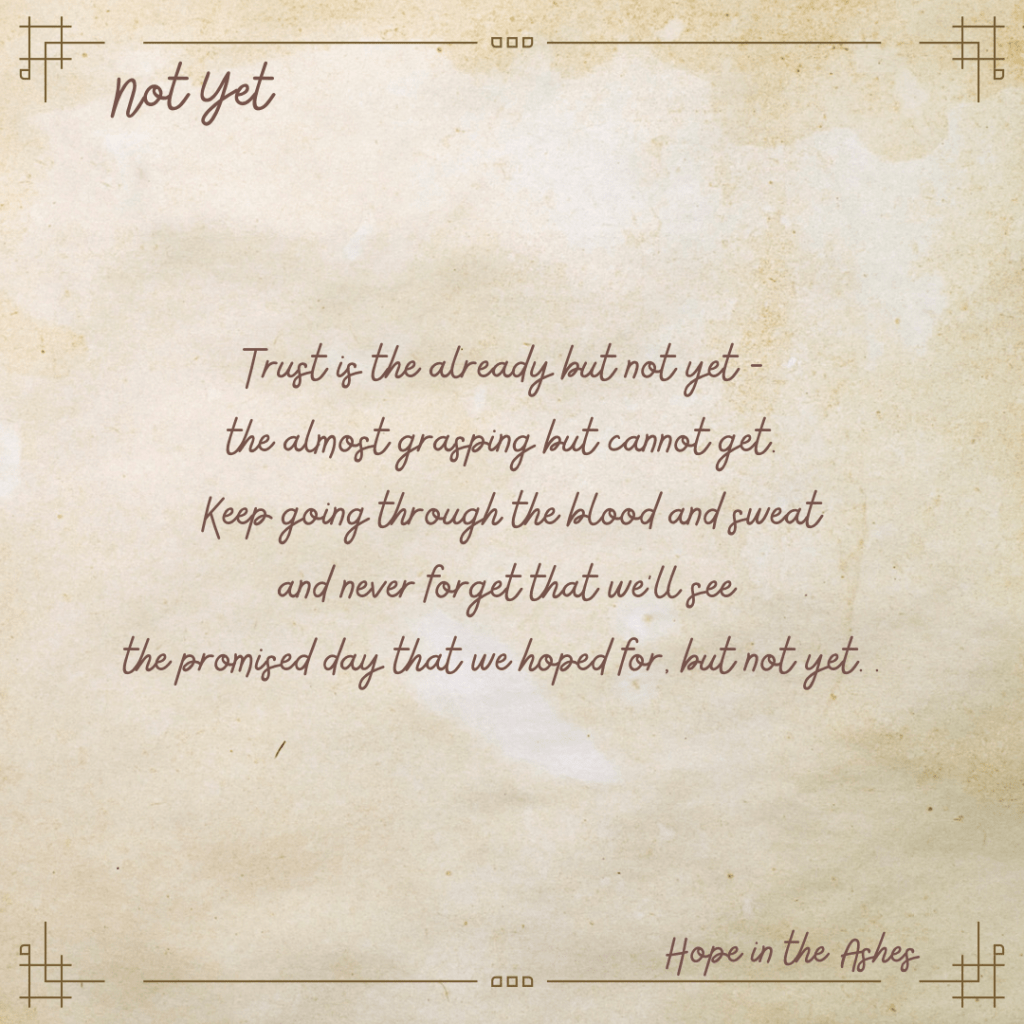 Not Yet
Trust is the already but not yet -
the almost grasping but cannot get.
Keep going through the blood and sweat
and never forget that we'll see
the promised day that we hoped for, but not yet. .
Hope in the Ashes